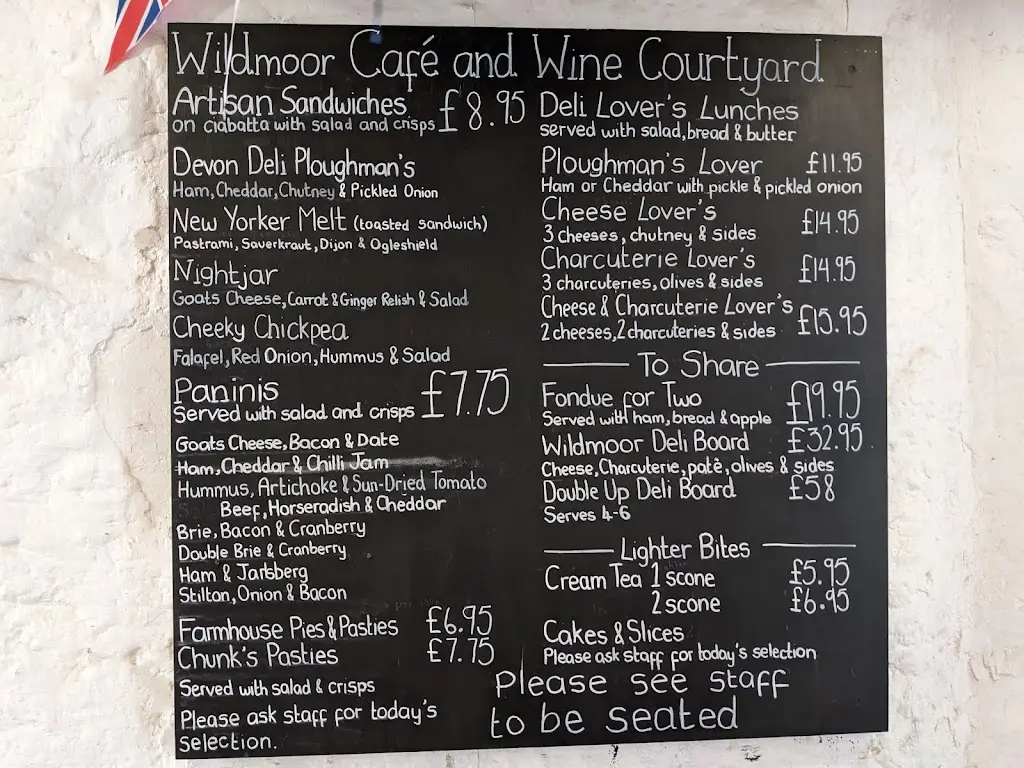 Wildmoor Café and Wine Courtyard
Artisan Sandwiches £8.95
on ciabatta with salad and crisps
Devon Deli Ploughman's
Ham, Cheddar, Chutney & Pickled Onion
New Yorker Melt (toasted sandwich)
Pastrami, Sauerkraut, Dijon & Ogleshield
Nightjar
Goats Cheese, Carrot & Ginger Relish & Salad
Cheeky Chickpea
Falafel, Red Onion, Hummus & Salad
Paninis £7.75
Served with salad and crisps
Goats Cheese, Bacon & Date
Ham, Cheddar & Chilli Jam
Hummus, Artichoke & Sun-Dried Tomato
Beef, Horseradish & Cheddar
Brie, Bacon & Cranberry
Double Brie & Cranberry
Ham & Jarlsberg
Stilton, Onion & Bacon
Farmhouse Pies & Pasties £6.95
Chunk's Pasties £7.75
Served with salad & crisps
Please ask staff for today's
selection.
Deli Lover's Lunches
served with salad, bread & butter
Ploughman's Lover £11.95
Ham or Cheddar with pickle & pickled onion
Cheese Lover's £14.95
3 Cheeses, chutney & sides
Charcuterie Lover's £14.95
3 charcuteries, olives & sides
Cheese & Charcuterie Lover's £15.95
2 cheeses, 2 charcuteries & sides
To Share
Fondue for Two £19.95
Served with ham, bread & apple
Wildmoor Deli Board £32.95
Cheese, Charcuterie, patè, olives & sides
Double Up Deli Board £58
Serves 4-6
Lighter Bites
Cream Tea 1 scone £5.95
2 scone £6.95
Cakes & Slices
Please ask staff for today's selection
Please see staff
to be seated